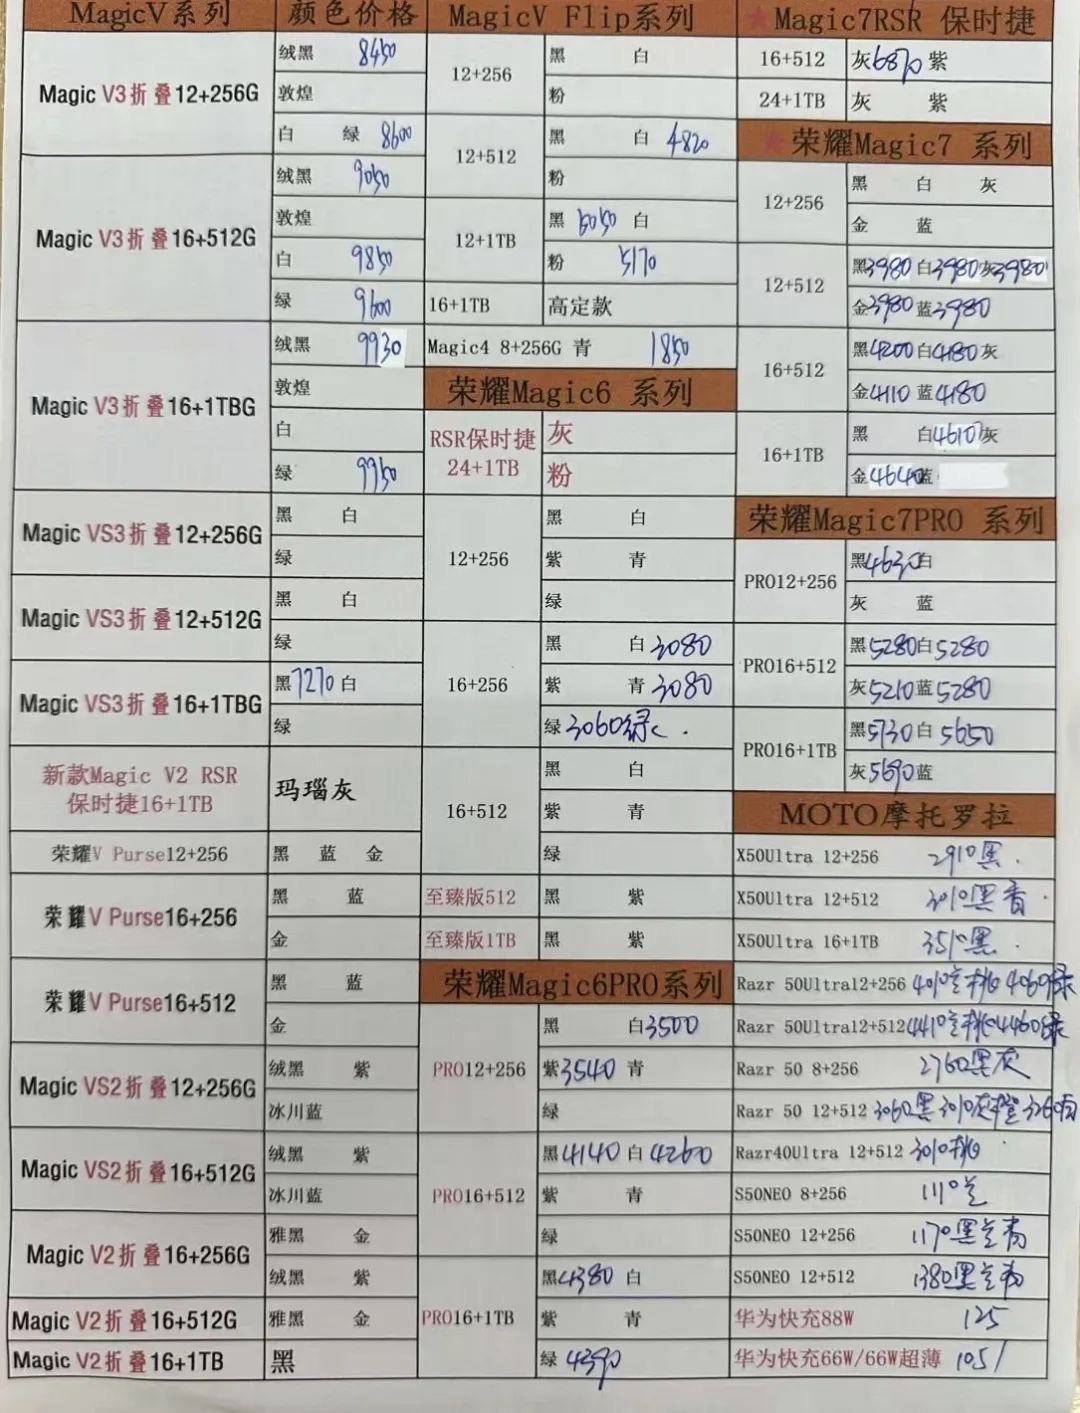 MagicV系列 颜色价格
Magic V3折叠12+256G
绒黑 8450
敦煌
白 绿 8600
Magic V3折叠16+512G
绒黑 9050
敦煌
白 9850
绿 9600
Magic V3折叠16+1TBG
绒黑 9930
敦煌
白
绿 9950
Magic VS3折叠12+256G
黑 白
绿
Magic VS3折叠12+512G
黑 白
绿
Magic VS3折叠16+1TBG
黑7270白
绿
新款Magic V2 RSR
保时捷16+1TB
玛瑙灰
荣耀V Purse12+256 黑 蓝 金
荣耀V Purse16+256
黑 蓝
金
荣耀V Purse16+512
黑 蓝
金
Magic VS2折叠12+256G
绒黑 紫
冰川蓝
Magic VS2折叠16+512G
绒黑 紫
冰川蓝
Magic V2折叠16+256G
雅黑 金
绒黑 紫
Magic V2折叠16+512G 雅黑 金
Magic V2折叠16+1TB 黑
MagicV Flip系列
12+256
黑 白
粉
12+512
黑 白 4820
粉
12+1TB
黑 5050 白
粉 5170
16+1TB 高定款
Magic4 8+256G 青 1850
荣耀Magic6 系列
RSR保时捷
24+1TB
灰
粉
12+256
黑 白
紫 青
绿
16+256
黑 白3080
紫 青3080
绿3060绿
16+512
黑 白
紫 青
绿
至臻版512 黑 紫
至臻版1TB 黑 紫
荣耀Magic6PRO系列
PRO12+256
黑 白3500
紫3540 青
绿
PRO16+512
黑4140 白4260
紫 青
绿
PRO16+1TB
黑4380 白
紫 青
绿 4390
★Magic7RSR 保时捷
16+512 灰6870紫
24+1TB 灰 紫
★荣耀Magic7 系列
12+256
黑 白 灰
金 蓝
12+512
黑3980白3980灰3980
金3980蓝3980
16+512
黑4200白4180灰
金4110蓝4180
16+1TB
黑 白4610灰
金4640蓝
荣耀Magic7PRO 系列
PRO12+256
黑4630白
灰 蓝
PRO16+512
黑5280白5280
灰5210蓝5280
PRO16+1TB
黑5730白5650
灰5690蓝
MOTO摩托罗拉
X50Ultra 12+256 2910黑
X50Ultra 12+512 3010黑青
X50Ultra 16+1TB 3510黑
Razr 50Ultra12+256 4010兰桃 4060绿
Razr 50Ultra12+512 4410兰桃4460绿
Razr 50 8+256 2760黑灰
Razr 50 12+512 3060黑3010灰橙
Razr40Ultra 12+512 3010桃
S50NEO 8+256 1110兰
S50NEO 12+256 1170黑兰青
S50NEO 12+512 1380黑兰青
华为快充88W 125
华为快充66W/66W超薄 105/